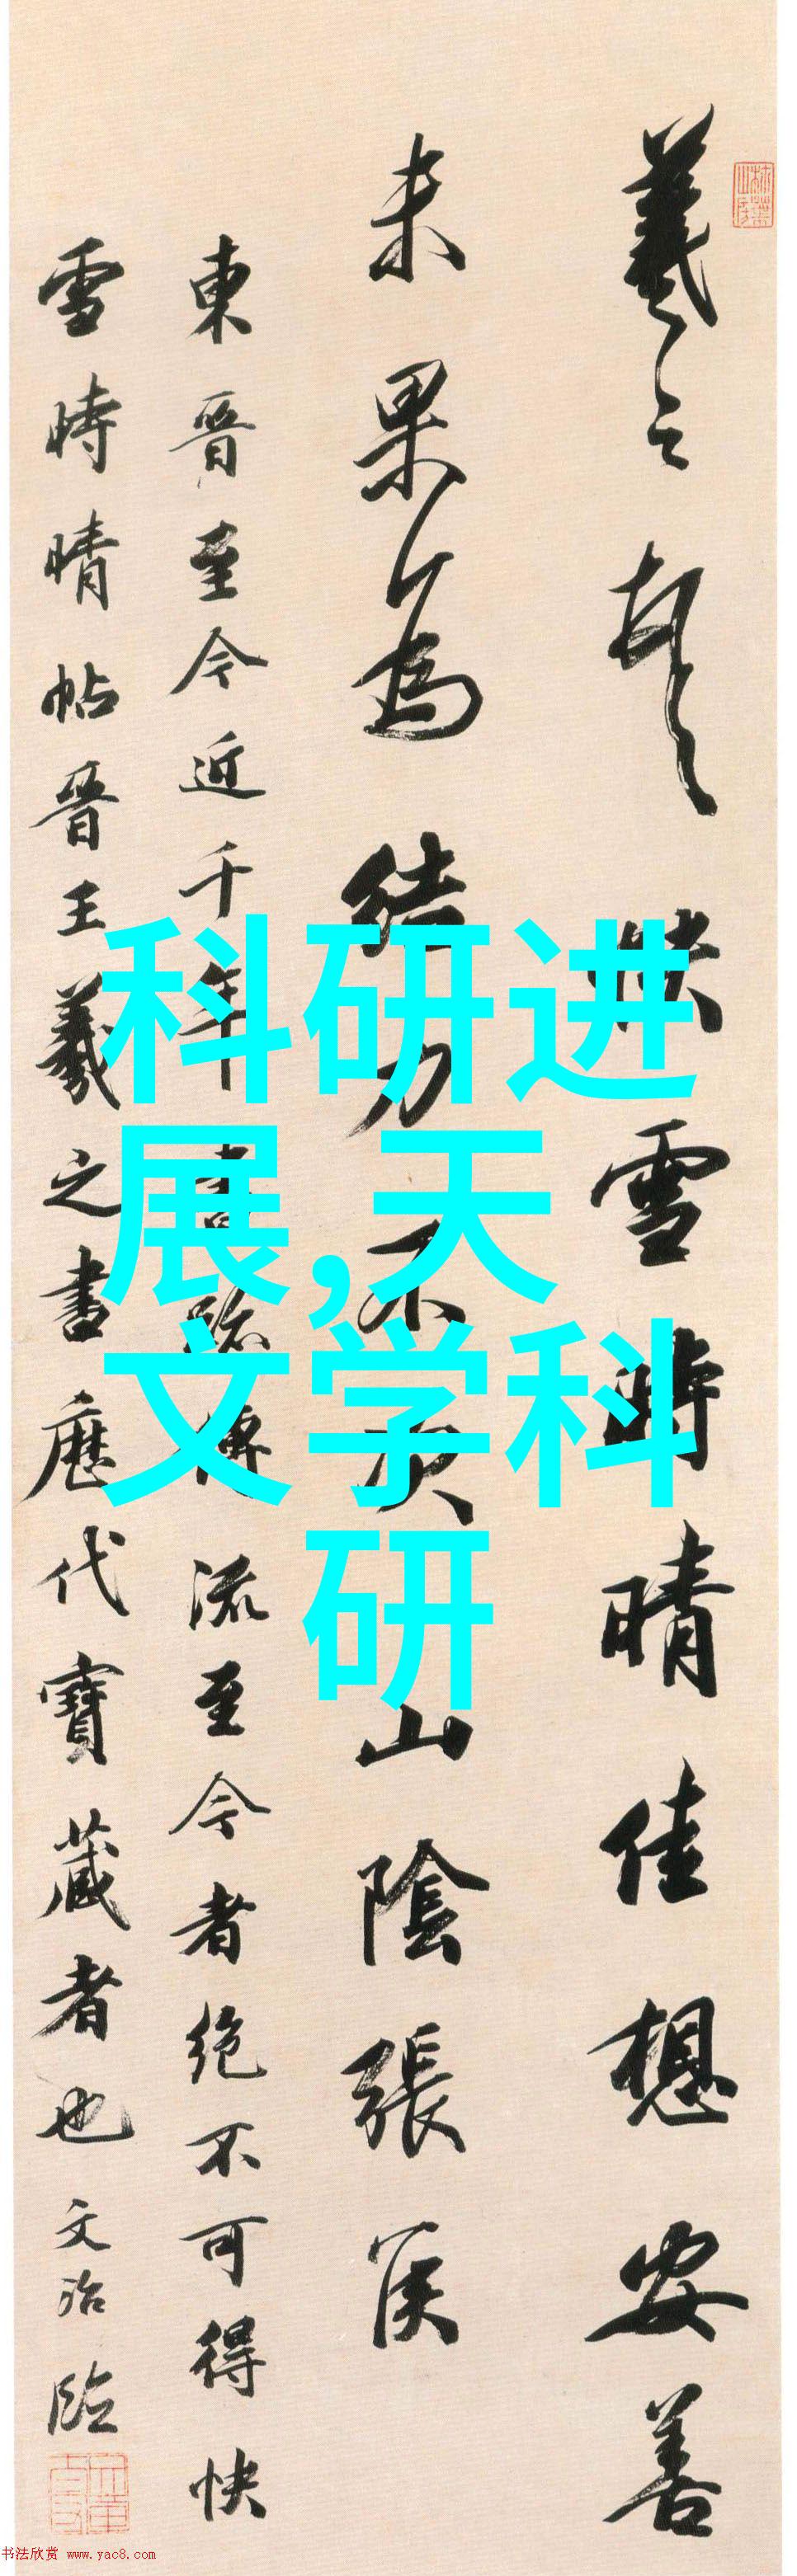 羲之頓首快雪時晴佳想安善
未果為結力不次山陰張侯
東晉至今近千年書跡傳流至今者絕不可得快
雪時晴帖晉王羲之書歷代寶藏者也文治臨
科研进
展,天
文学科
研
书法欣赏 www.yac8.com